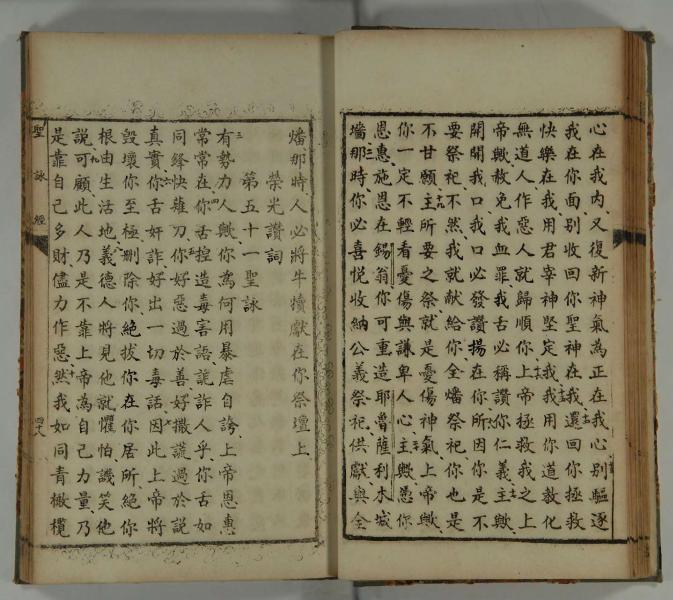 心在我內又復新神氣為正在我心別驅逐
我在你面別收回你聖神在我還回你拯救
快樂在我用君宰神堅定我我用你道教化
無道人作惡人就歸順你上帝拯救我之上
帝歟赦免我血罪我舌必稱讚你仁義主歟
開開我口我口必發讚揚在你所因你是不
要祭祀不然我就献給你全燔祭祀你也是
不甘願主所要之祭就是憂傷神氣上帝歟
你一定不輕看憂傷與謙卑人心主歟慿你
恩惠施恩在錫翁你可重造耶魯薩利木城
墻那時你必喜悅收納公義祭祀供獻與全
燔那時人必將牛犢獻在你祭壇上
榮光讚詞
第五十一聖詠
有勢力人歟你為何用暴虐自誇上帝恩惠
常常在你舌捏造毒害語詭詐人乎你舌如
同鋒快薙刀你好惡過於善好撒謊過於説
真實你舌奸詐好出一切毒話因此上帝將
毀壞你至極刪除你絕拔你在你居所絕你
根由生活地義德人將見他就懼怕譏笑他
説可顧此人乃是不靠上帝為自己力量乃
是靠自己多財儘力作惡然我如同青橄欖
聖詠經
四十八